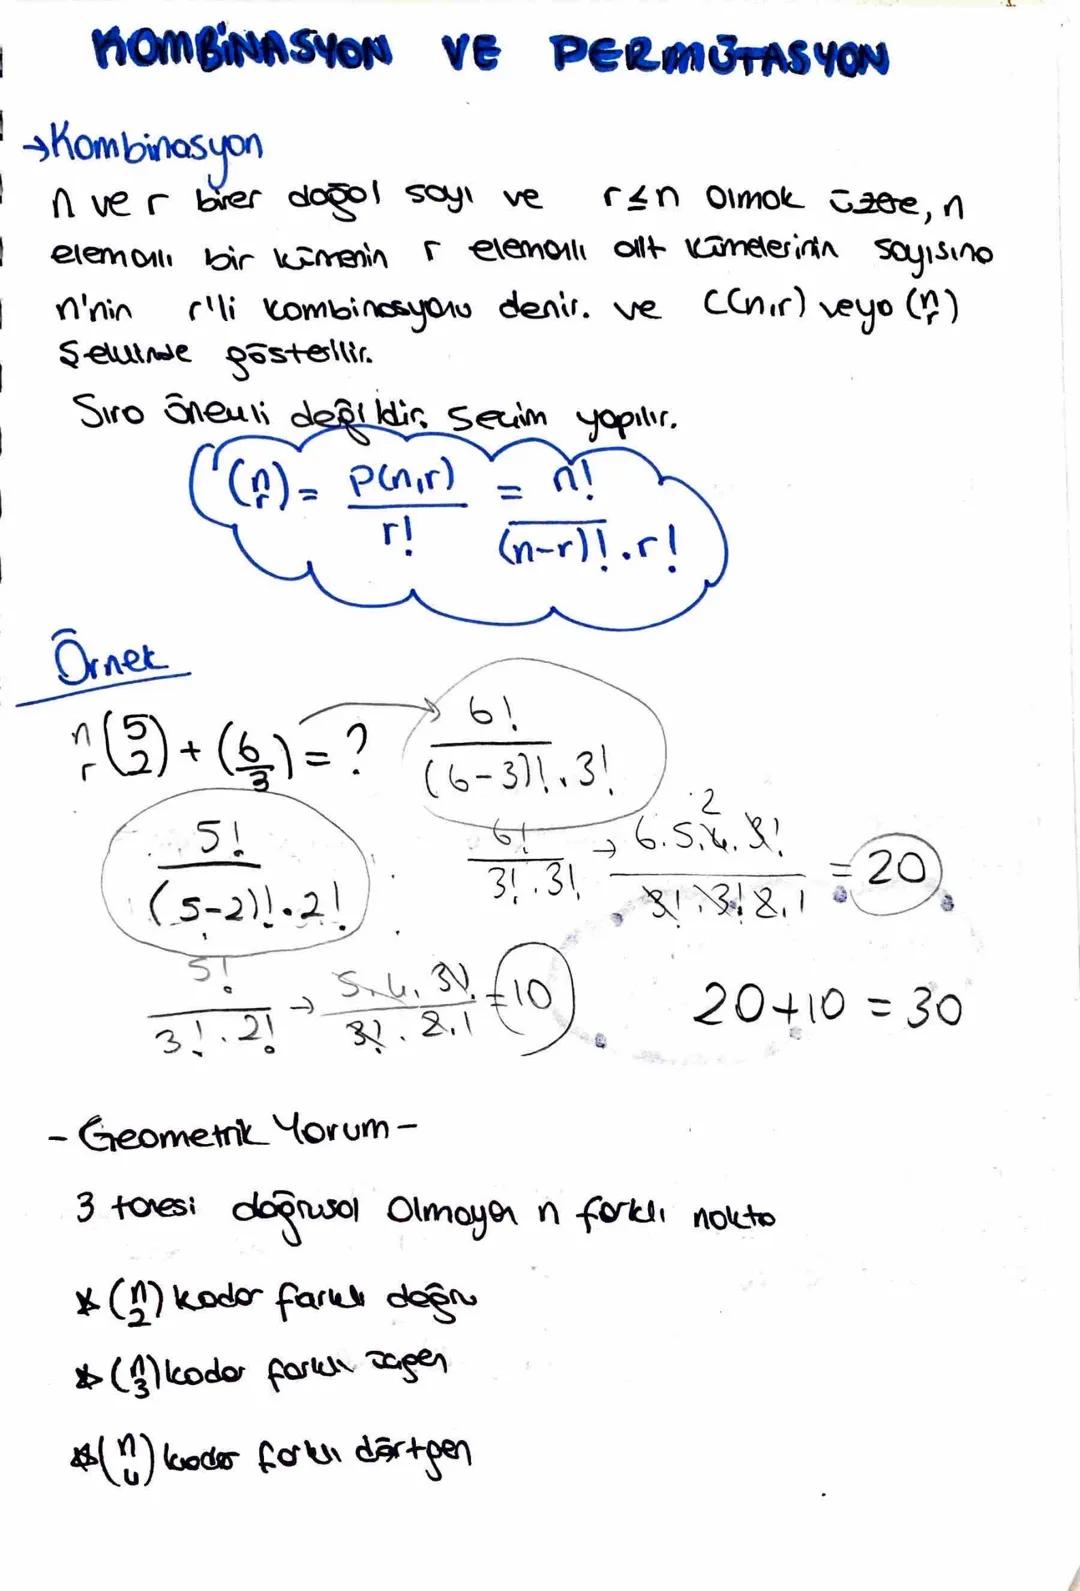 KOMBİNASYON VE PERMÜTASYON
→Kombinasyon
n ve r birer doğal sayı ve r≤n olmak üzere, n
elemanlı bir kümenin r elemanlı alt kümelerinin sayısına
n'nin r'li kombinasyonu denir. ve C(n,r) veya (n r)
Şeklinde gösterilir.
Sıra önemli değildir. Seçim yapılır.
(n r) = P(n,r) / r! = n! / (n-r)!.r!
Örnek
n r (5 2) + (6 3) = ? → 6! / (6-3)!.3!
5! / (5-2)!.2!
6! / 3!.3! → 6.5.4.3! / 3!.3!.2.1 = 20
2
5! / 3!.2! → 5.4.3! / 3!.2.1 = 10
20+10 = 30
- Geometrik Yorum -
3 tanesi doğrusal Olmayan n farklı nokta
* (n 2) kadar farklı doğru
* (n 3) kadar farklı üçgen
* (n 4) kadar farklı dörtgen